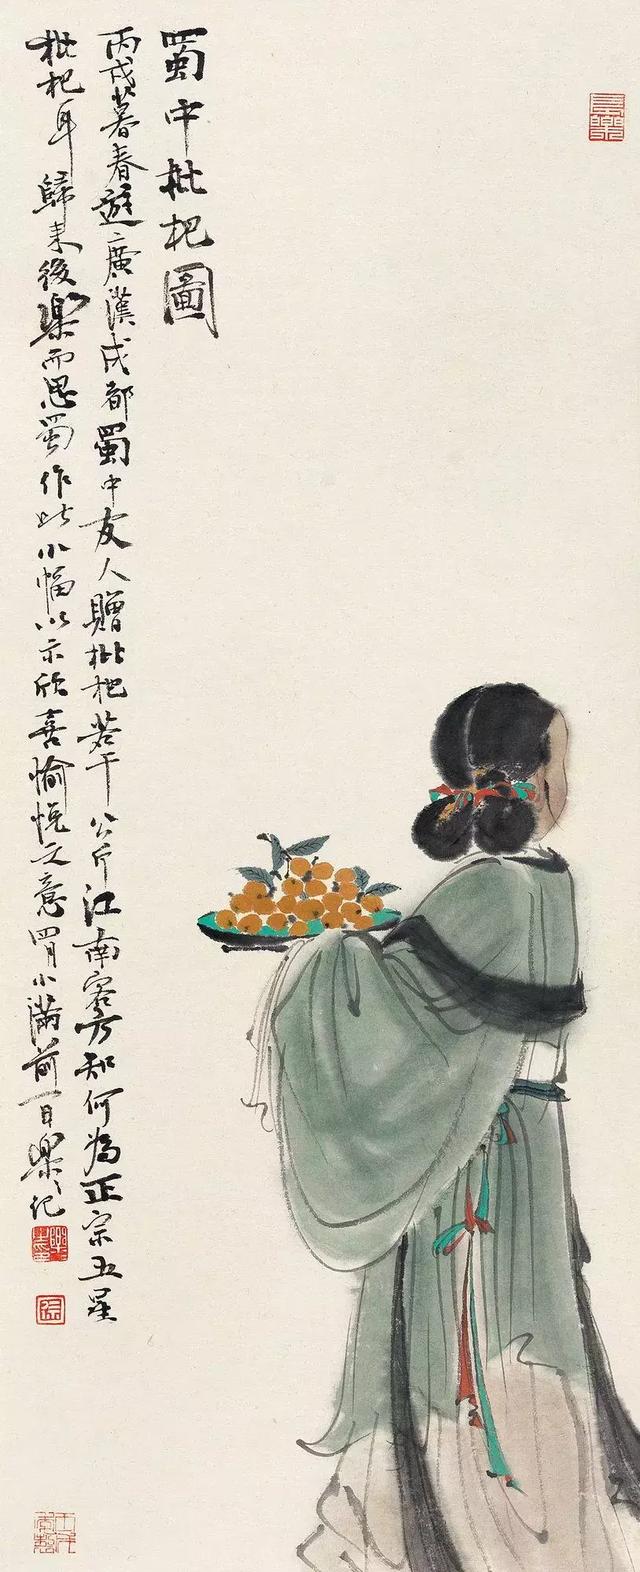 蜀中枇杷圖
丙戌暮春遊廣漢成都蜀中友人贈枇杷若干公斤江南客方知何為正宗五星
枇杷耳歸来後樂而思蜀作此小幅以示欣喜愉悅之意時小滿前一日樂樂記